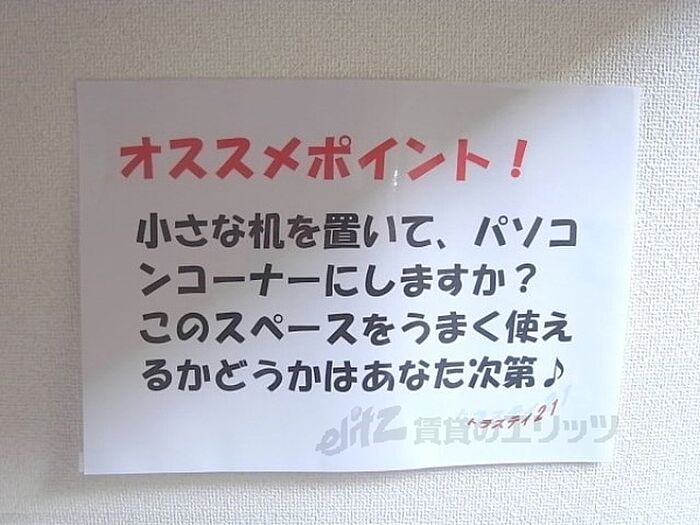 オススメポイント！
小さな机を置いて、パソコ
ンコーナーにしますか？
このスペースをうまく使え
るかどうかはあなた次第♪
トラスティ21
elitz 賃貸のエリッツ